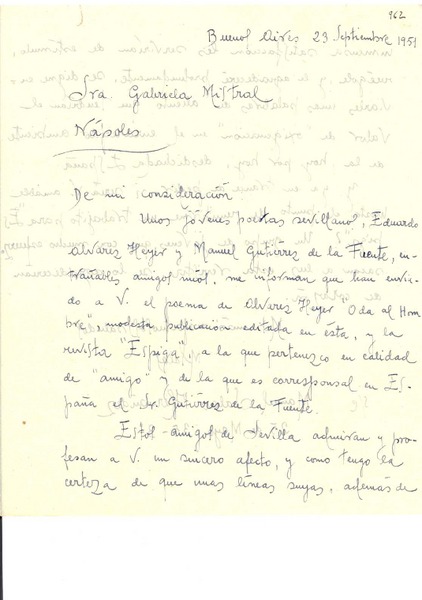 962
Buenos Aires 23 Septiembre 1951
Sra. Gabriela Mistral
Nápoles
De mi consideración
Unos jóvenes poetas sevillanos, Eduardo
Alvarez Heyer y Manuel Gutiérrez de la Fuente, en-
trañables amigos míos, me informan que han envia-
do a V. el poema de Alvarez Heyer "Oda al Hom-
bre", modesta publicación editada en ésta, y la
revista "Espiga", a la que pertenezco en calidad
de "amigo" y de la que es corresponsal en Es-
paña el Sr. Gutiérrez de la Fuente.
Estos amigos de Sevilla admiran y pro-
fesan a V. un sincero afecto, y como tengo la
certeza de que unas líneas suyas, además de